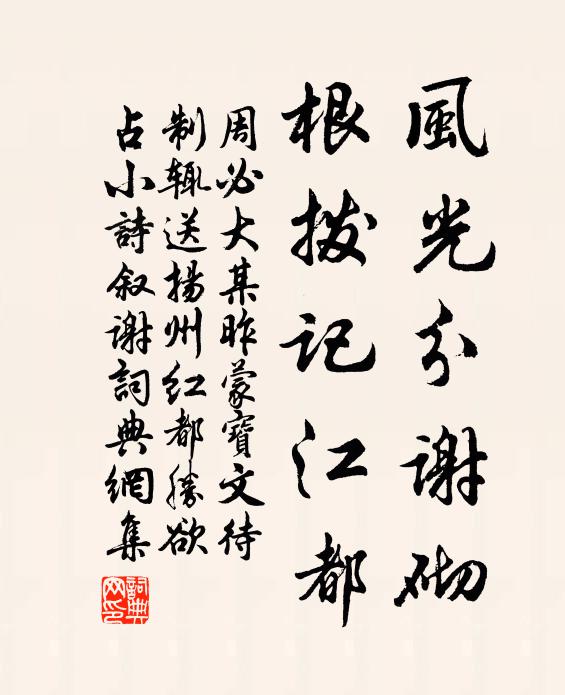 風光分謝砌
根撥記江都
周必大某昨蒙寶文待
制輒送揚州红都勝欲
占小詩叙谢詞典網集
詞典网印